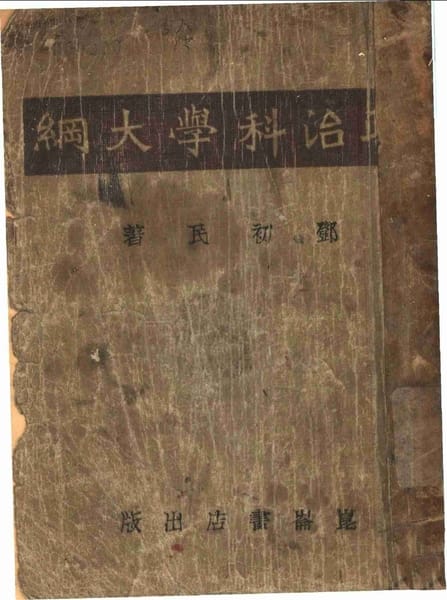 政治科學大綱
鄧初民著
崑崙書店出版